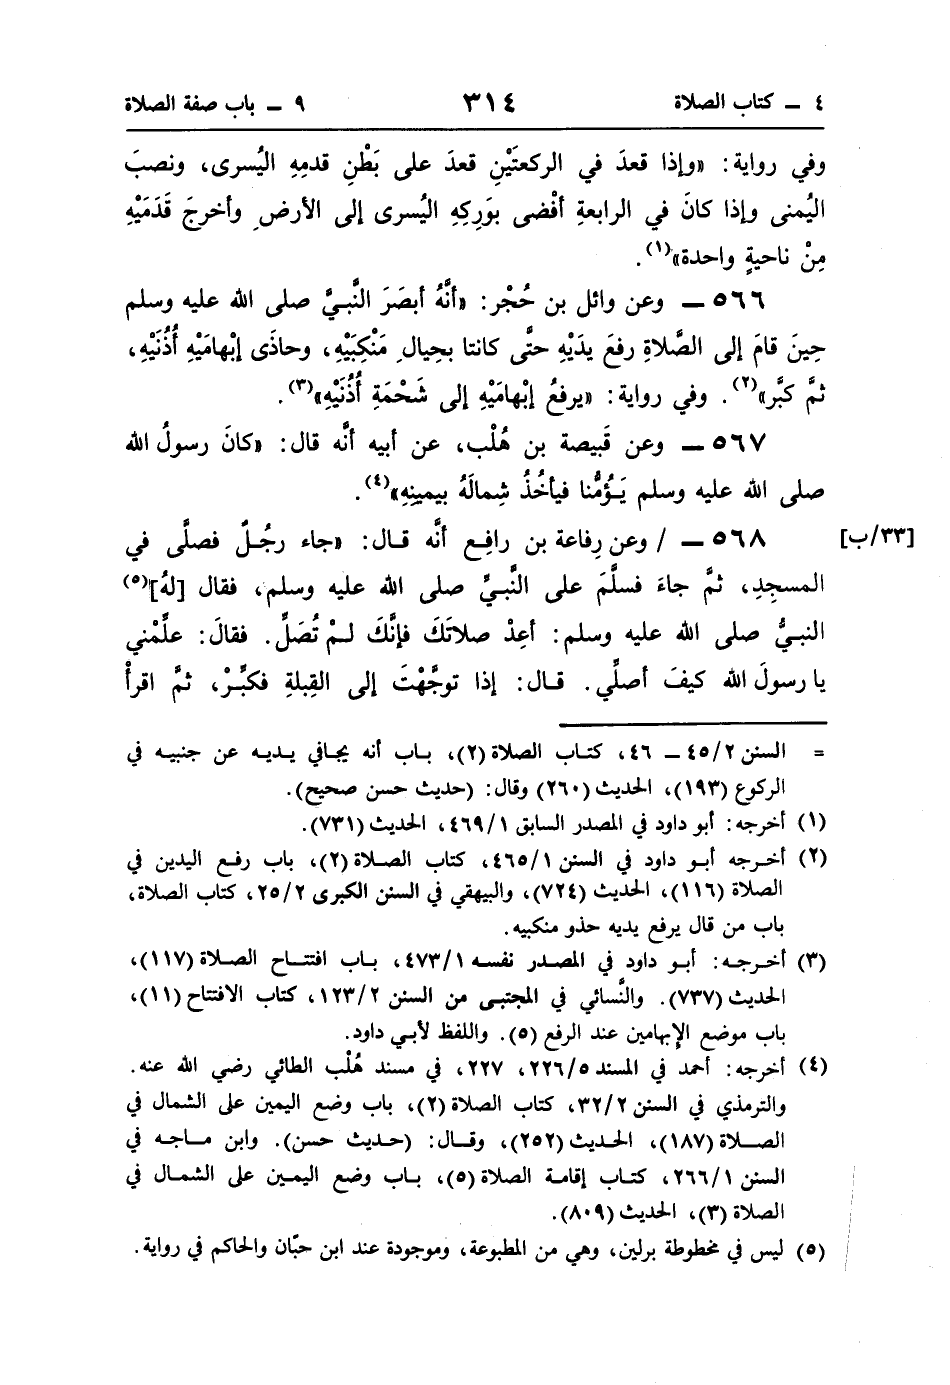 ٤ ــ كتاب الصلاة ٣١٤ ٩ ــ باب صفة الصلاة
وفي رواية: «وإذا قعدَ في الركعتَيْنِ قعدَ على بَطْنِ قدمِهِ اليُسرى، ونصبَ
اليُمنى وإذا كانَ في الرابعةِ أفْضى بوَرِكِهِ اليُسرى إلى الأرضِ وأخرجَ قَدَمَيْهِ
مِنْ ناحيةٍ واحدة»(١).
٥٦٦ ــ وعن وائل بن حُجْر: «أنَّهُ أبصَرَ النَّبيَّ صلى الله عليه وسلم
حِينَ قامَ إلى الصَّلاةِ رفعَ يدَيْهِ حتَّى كانتا بحِيالِ مَنْكِبَيْهِ، وحاذَى إبْهاميْهِ أُذُنَيْهِ،
ثمَّ كبَّر»(٢). وفي رواية: «يرفعُ إبْهامَيْهِ إلى شَحْمَةِ أُذُنَيْهِ»(٣).
٥٦٧ ــ وعن قَبيصة بن هُلْب، عن أبيه أنَّه قال: «كانَ رسولُ الله
صلى الله عليه وسلم يَؤُمُّنا فيأخُذُ شِمالَهُ بيمينِهِ»(٤).
[٣٣/ب] ٥٦٨ ــ / وعن رِفاعة بن رافِع أنَّه قال: «جاء رجُلٌ فصلَّى في
المسجِدِ، ثمَّ جاءَ فسلَّمَ على النَّبيِّ صلى الله عليه وسلم، فقال [لهُ](٥)
النبيُّ صلى الله عليه وسلم: أعِدْ صلاتَكَ فإنَّكَ لمْ تُصَلِّ. فقالَ: علِّمْني
يا رسولَ الله كيفَ أصلِّي. قال: إذا توجَّهْتَ إلى القِبلةِ فكبِّرْ، ثمَّ اقرأْ
= السنن ٤٥/٢ ــ ٤٦، كتاب الصلاة (٢)، باب أنه يجافي يديه عن جنبيه في
الركوع (١٩٣)، الحديث (٢٦٠) وقال: (حديث حسن صحيح).
(١) أخرجه: أبو داود في المصدر السابق ٤٦٩/١، الحديث (٧٣١).
(٢) أخرجه أبو داود في السنن ٤٦٥/١، كتاب الصلاة (٢)، باب رفع اليدين في
الصلاة (١١٦)، الحديث (٧٢٤)، والبيهقي في السنن الكبرى ٢٥/٢، كتاب الصلاة،
باب من قال يرفع يديه حذو منكبيه.
(٣) أخرجه: أبو داود في المصدر نفسه ٤٧٣/١، باب افتتاح الصلاة (١١٧)،
الحديث (٧٣٧). والنَّسائي في المجتبى من السنن ١٢٣/٢، كتاب الافتتاح (١١)،
باب موضع الإبهامين عند الرفع (٥). واللفظ لأبي داود.
(٤) أخرجه: أحمد في المسند ٢٢٦/٥، ٢٢٧، في مسند هُلْب الطائي رضي الله عنه.
والترمذي في السنن ٣٢/٢، كتاب الصلاة (٢)، باب وضع اليمين على الشمال في
الصلاة (١٨٧)، الحديث (٢٥٢)، وقال: (حديث حسن). وابن ماجه في
السنن ٢٦٦/١، كتاب إقامة الصلاة (٥)، باب وضع اليمين على الشمال في
الصلاة (٣)، الحديث (٨٠٩).
(٥) ليس في مخطوطة برلين، وهي من المطبوعة، وموجودة عند ابن حبّان والحاكم في رواية.